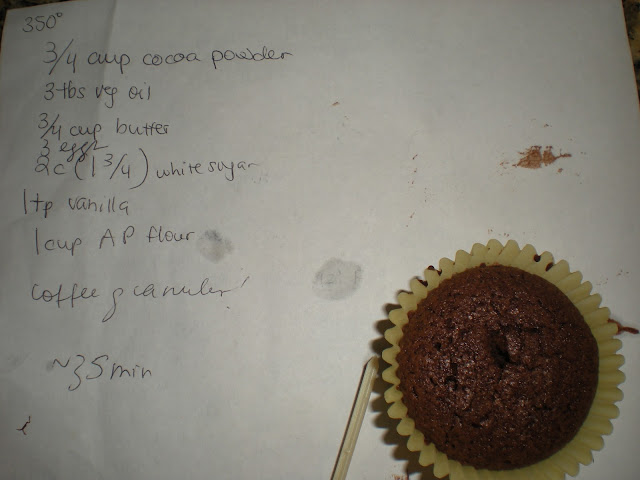 350°
3/4 cup cocoa powder
3 tbs veg oil
3/4 cup butter
3 eggs
2c (1 3/4) white sugar
1 tp vanilla
1 cup AP flour
coffee granules!
~35 min